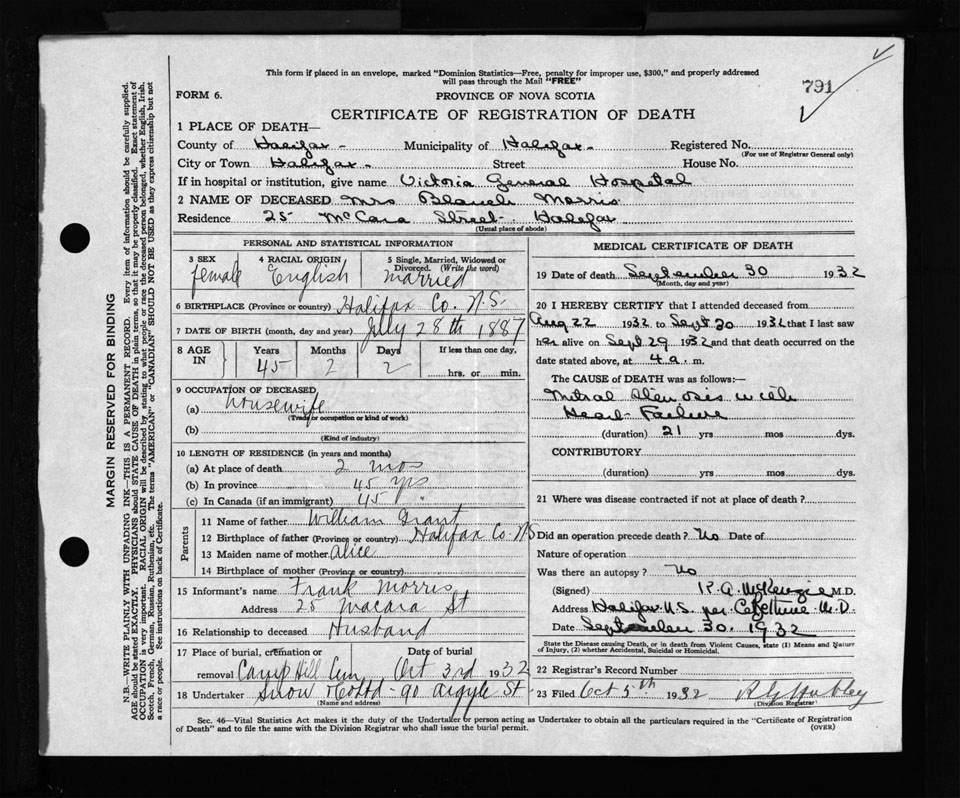 This form if placed in an envelope, marked "Dominion Statistics—Free, penalty for improper use, $300," and properly addressed
will pass through the Mail "FREE"
791
FORM 6.
PROVINCE OF NOVA SCOTIA
CERTIFICATE OF REGISTRATION OF DEATH
1 PLACE OF DEATH—
County of Halifax - Municipality of Halifax - Registered No.
(For use of Registrar General only)
City or Town Halifax - Street House No.
If in hospital or institution, give name Victoria General Hospital
2 NAME OF DECEASED Mrs Blanch Morris
Residence 25 McCara Street - Halifax
(Usual place of abode)
MARGIN RESERVED FOR BINDING
N.B.—WRITE PLAINLY WITH UNFADING INK—THIS IS A PERMANENT RECORD. Every item of information should be carefully supplied.
AGE should be stated EXACTLY. PHYSICIANS should STATE CAUSE OF DEATH in plain terms, so that it may be properly classified. Exact statement of
OCCUPATION is very important. RACIAL ORIGIN will be described by stating to what people or race the deceased person belonged, whether English, Irish,
Scotch, French, German, Russian, Ruthenian, etc. The terms "AMERICAN" or "CANADIAN" SHOULD NOT BE USED as they express citizenship but not
a race or people. See instructions on back of Certificate.
PERSONAL AND STATISTICAL INFORMATION
3 SEX 4 RACIAL ORIGIN 5 Single, Married, Widowed or
Divorced. (Write the word)
female English married
6 BIRTHPLACE (Province or country) Halifax Co. N.S.
7 DATE OF BIRTH (month, day and year) July 28th 1887
8 AGE IN Years Months Days If less than one day,
45 2 2 hrs. or min.
9 OCCUPATION OF DECEASED
(a) housewife
(Trade or occupation or kind of work)
(b)
(Kind of industry)
10 LENGTH OF RESIDENCE (in years and months)
(a) At place of death 2 mos
(b) In province 45 yrs
(c) In Canada (if an immigrant) 45 "
Parents
11 Name of father William Grant
12 Birthplace of father (Province or country) Halifax Co. N.S
13 Maiden name of mother Alice
14 Birthplace of mother (Province or country)
15 Informant's name Frank Morris
Address 25 Macara St
16 Relationship to deceased Husband
17 Place of burial, cremation or Date of burial
removal Camp Hill Cem Oct 3rd 1932
18 Undertaker Snow & Co Ltd - 90 Argyle St
(Name and address)
MEDICAL CERTIFICATE OF DEATH
19 Date of death September 30 1932
(Month, day and year)
20 I HEREBY CERTIFY that I attended deceased from
Aug 22 1932 to Sept 30 1932 that I last saw
her alive on Sept 29 1932 and that death occurred on the
date stated above, at 4 a. m.
The CAUSE of DEATH was as follows:—
Mitral Stenosis with
Heart Failure
(duration) 21 yrs mos dys.
CONTRIBUTORY
(duration) yrs mos dys.
21 Where was disease contracted if not at place of death?
Did an operation precede death? No Date of
Nature of operation
Was there an autopsy? No
(Signed) K. A. McKenzie M.D.
Address Halifax N.S. per M.D.
Date September 30. 1932
State the Disease causing Death, or in death from Violent Causes, state (1) Means and Nature
of Injury, (2) whether Accidental, Suicidal or Homicidal.
22 Registrar's Record Number
23 Filed Oct 5th 1932 Hubley
(Division Registrar)
Sec. 46—Vital Statistics Act makes it the duty of the Undertaker or person acting as Undertaker to obtain all the particulars required in the "Certificate of Registration
of Death" and to file the same with the Division Registrar who shall issue the burial permit.
(OVER)